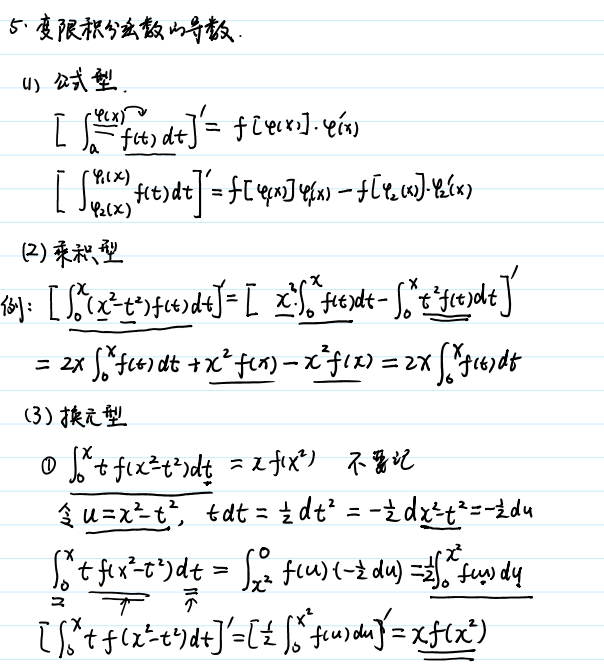 5. 变限积分函数的导数.
(1) 公式型.
[∫_a^{φ(x)} f(t) dt]' = f[φ(x)]·φ'(x)
[∫_{φ₂(x)}^{φ₁(x)} f(t) dt]' = f[φ₁(x)]φ₁'(x) - f[φ₂(x)]·φ₂'(x)
(2) 乘积型
例: [∫_0^x (x²-t²)f(t)dt]' = [x²·∫_0^x f(t)dt - ∫_0^x t²f(t)dt]'
= 2x∫_0^x f(t)dt + x²f(x) - x²f(x) = 2x∫_0^x f(t)dt
(3) 换元型
① ∫_0^x t f(x²-t²)dt = x f(x²) 不要记
令 u=x²-t², tdt = ½dt² = -½dx²-t² = -½du
∫_0^x t f(x²-t²)dt = ∫_{x²}^0 f(u)(-½du) = ½∫_0^{x²} f(u)du
[∫_0^x t f(x²-t²)dt]' = [½∫_0^{x²} f(u)du]' = xf(x²)